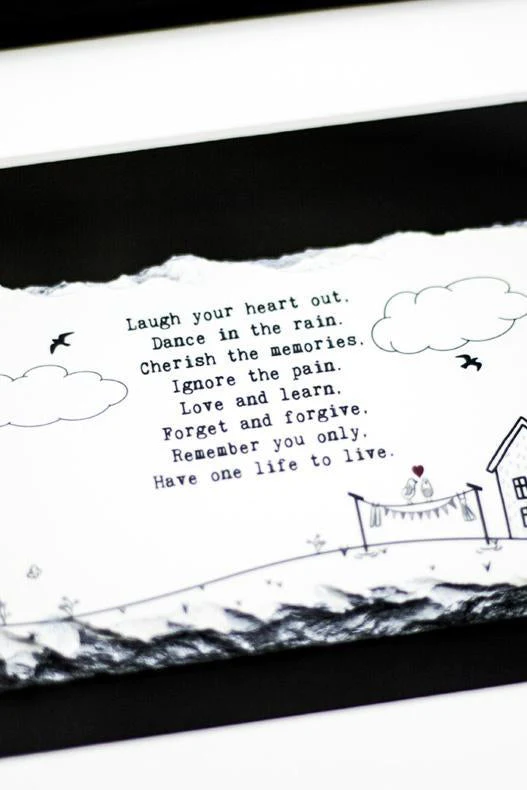 Laugh your heart out.
Dance in the rain.
Cherish the memories.
Ignore the pain.
Love and learn,
Forget and forgive.
Remember you only,
Have one life to live.